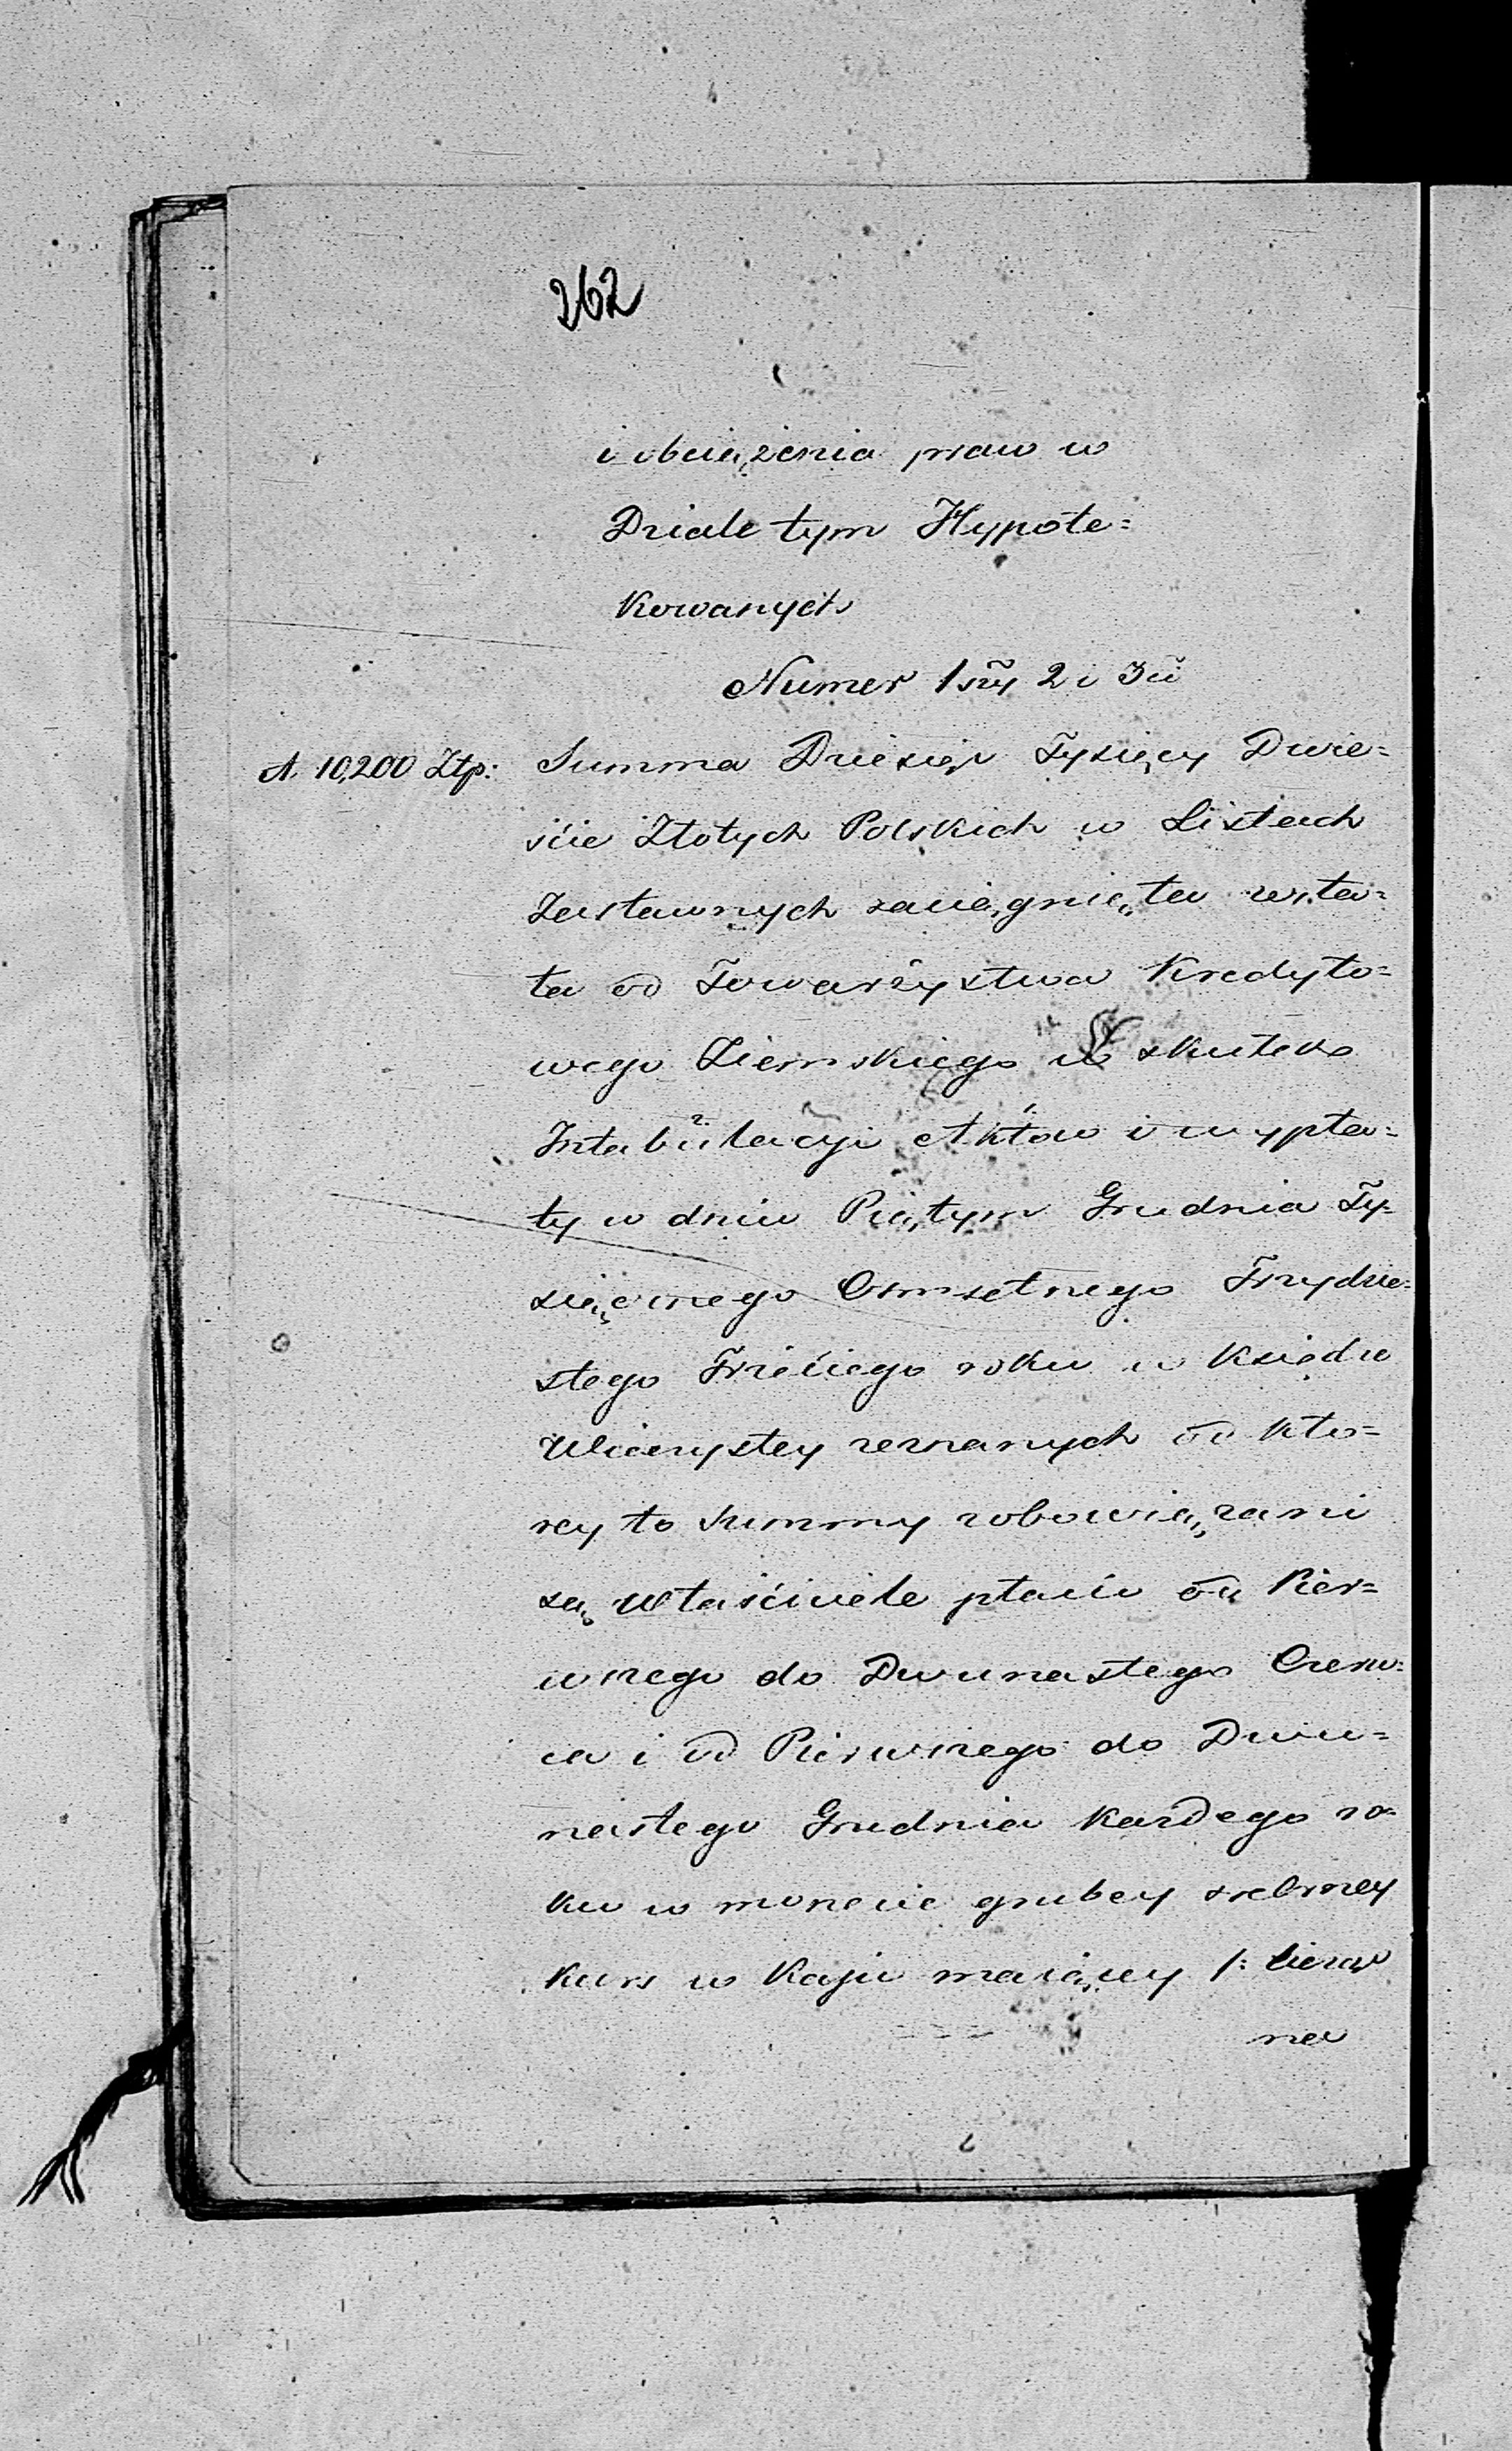 262
i obciążenia praw w
Dziale tym Hypote=
kowanych
Numer 1szy 2 i 3ci
A. 10,200 Złp: Summa Dziesięć Tysięcy Dwie=
ście Złotych Polskich w Listach
Zastawnych zaciągnięta zosta=
ła od Towarzystwa Kredyto=
wego Ziemskiego w skutek
Intabulacyi Aktów i wypła=
ty w dniu Piątym Grudnia Ty=
siącznego Ośmsetnego Trzydzie=
stego Trzeciego roku w Księdze
Wieczystey zeznanych od któ=
rey to Summy zobowiązani
są Właściciele płacić od Pier=
wszego do Dwunastego Czerw=
ca i od Pierwszego do Dwu=
nastego Grudnia każdego ro=
ku w monecie grubey srebrney
kurs w Kraju maiącey /: licząc
na